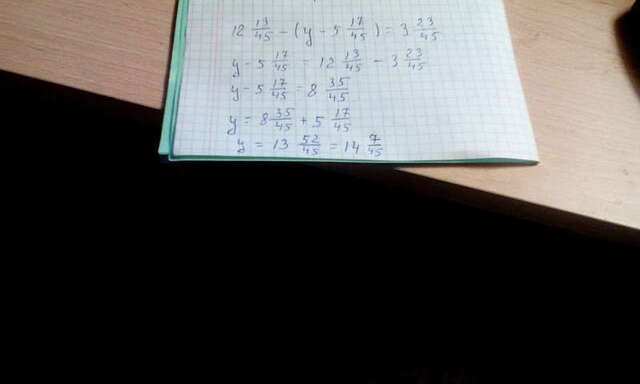 12 13/45 - (y - 5 17/45) = 3 23/45
y - 5 17/45 = 12 13/45 - 3 23/45
y - 5 17/45 = 8 35/45
y = 8 35/45 + 5 17/45
y = 13 52/45 = 14 7/45